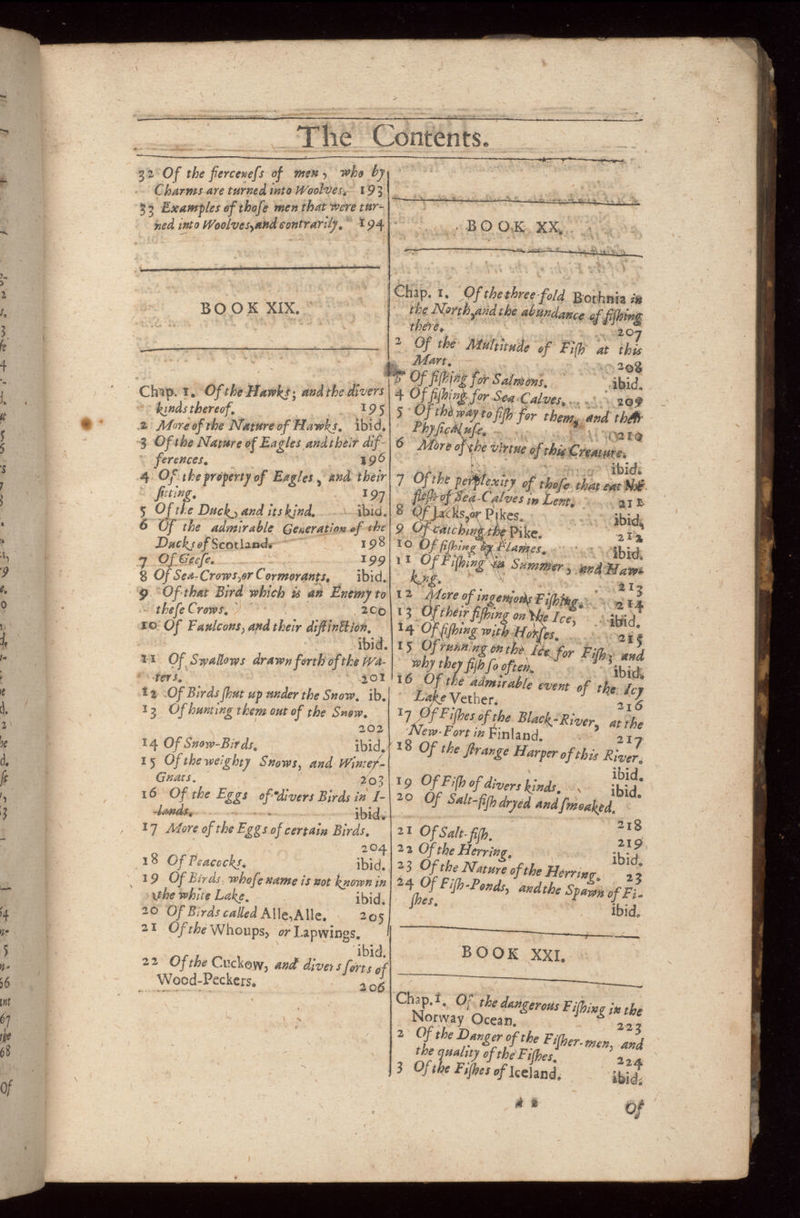 The Contents.
32 Of the fierceneſs of men, who by
Charms are turned into Woolves. 193
33 Examples of thoſe men that were tur-
ned into Woolves, and contrarily. 194
BOOK XIX.
Chap. 1. Of the Hawks; and the divers
kinds thereof. 195
2 More of the Nature of Hawks. ibid.
3 Of the Nature of Eagles and their dif-
ferences. 196
4 Of the property of Eagles, and their
ſitting. 197
5 Of the Duck, and its kind. ibid.
6 Of the admirable Generation of the
Ducks of Scotland. 198
7 Of Geeſe. 199
8 Of Sea-Crows, or Cormorants. ibid.
9 Of that Bird which is an Enemy to
theſe Crows. 200
10 Of Faulcons, and their diſtinction.
ibid.
11 Of Swallows drawn forth of the Wa-
ters. 201
12 Of Birds ſhut up under the Snow. ib.
13 Of hunting them out of the Snow.
202
14 Of Snow-Birds. ibid.
15 Of the weighty Snows, and Winter-
Gnats. 203
16 Of the Eggs of divers Birds in I-
lands. ibid.
17 More of the Eggs of certain Birds.
204
18 Of Peacocks. ibid.
19 Of Birds whoſe name is not known in
the white Lake. ibid.
20 Of Birds called Alle, Alle. 205
21 Of the Whoups, or Lapwings.
ibid.
22 Of the Cuckow, and divers ſorts of
Wood-Peckers. 206
BOOK XX.
Chap. 1. Of the three fold Bothnia in
the North, and the abundance of fiſhing
there. 207
2 Of the Multitude of Fiſh at this
Mart. 208
Of fiſhing for Salmons. ibid.
4 Of fiſhing for Sea-Calves. 209
5 Of the way to fiſh for them, and their
Phyſical uſe. 210
6 More of the virtue of this Creature.
ibid.
7 Of the perplexity of thoſe that eat the
fleſh of Sea-Calves in Lent. 211
8 Of Jacks, or Pikes. ibid.
9 Of catching the Pike. 212
10 Of fiſhing by Flames. ibid.
11 Of Fiſhing in Summer, and Haw-
king. 213
12 More of ingenious Fiſhing. 214
13 Of their fiſhing on the Ice. ibid.
14 Of fiſhing with Horſes. 215
15 Of running on the Ice for Fiſh, and
why they fiſh ſo often. ibid.
16 Of the admirable event of the Icy
Lake Vether. 216
17 Of Fiſhes of the Black-River, at the
New-Fort in Finland. 217
18 Of the ſtrange Harper of this River.
ibid.
19 Of Fiſh of divers kinds. ibid.
20 Of Salt-fiſh dryed and ſmoaked.
218
21 Of Salt-fiſh. 219
22 Of the Herring. ibid.
23 Of the Nature of the Herring. 23
24 Of Fiſh-Ponds, and the Spawn of Fi-
ſhes. ibid.
BOOK XXI.
Chap. 1. Of the dangerous Fiſhing in the
Norway Ocean. 223
2 Of the Danger of the Fiſher-men, and
the quality of the Fiſhes. 224
3 Of the Fiſhes of Iceland. ibid.
Of